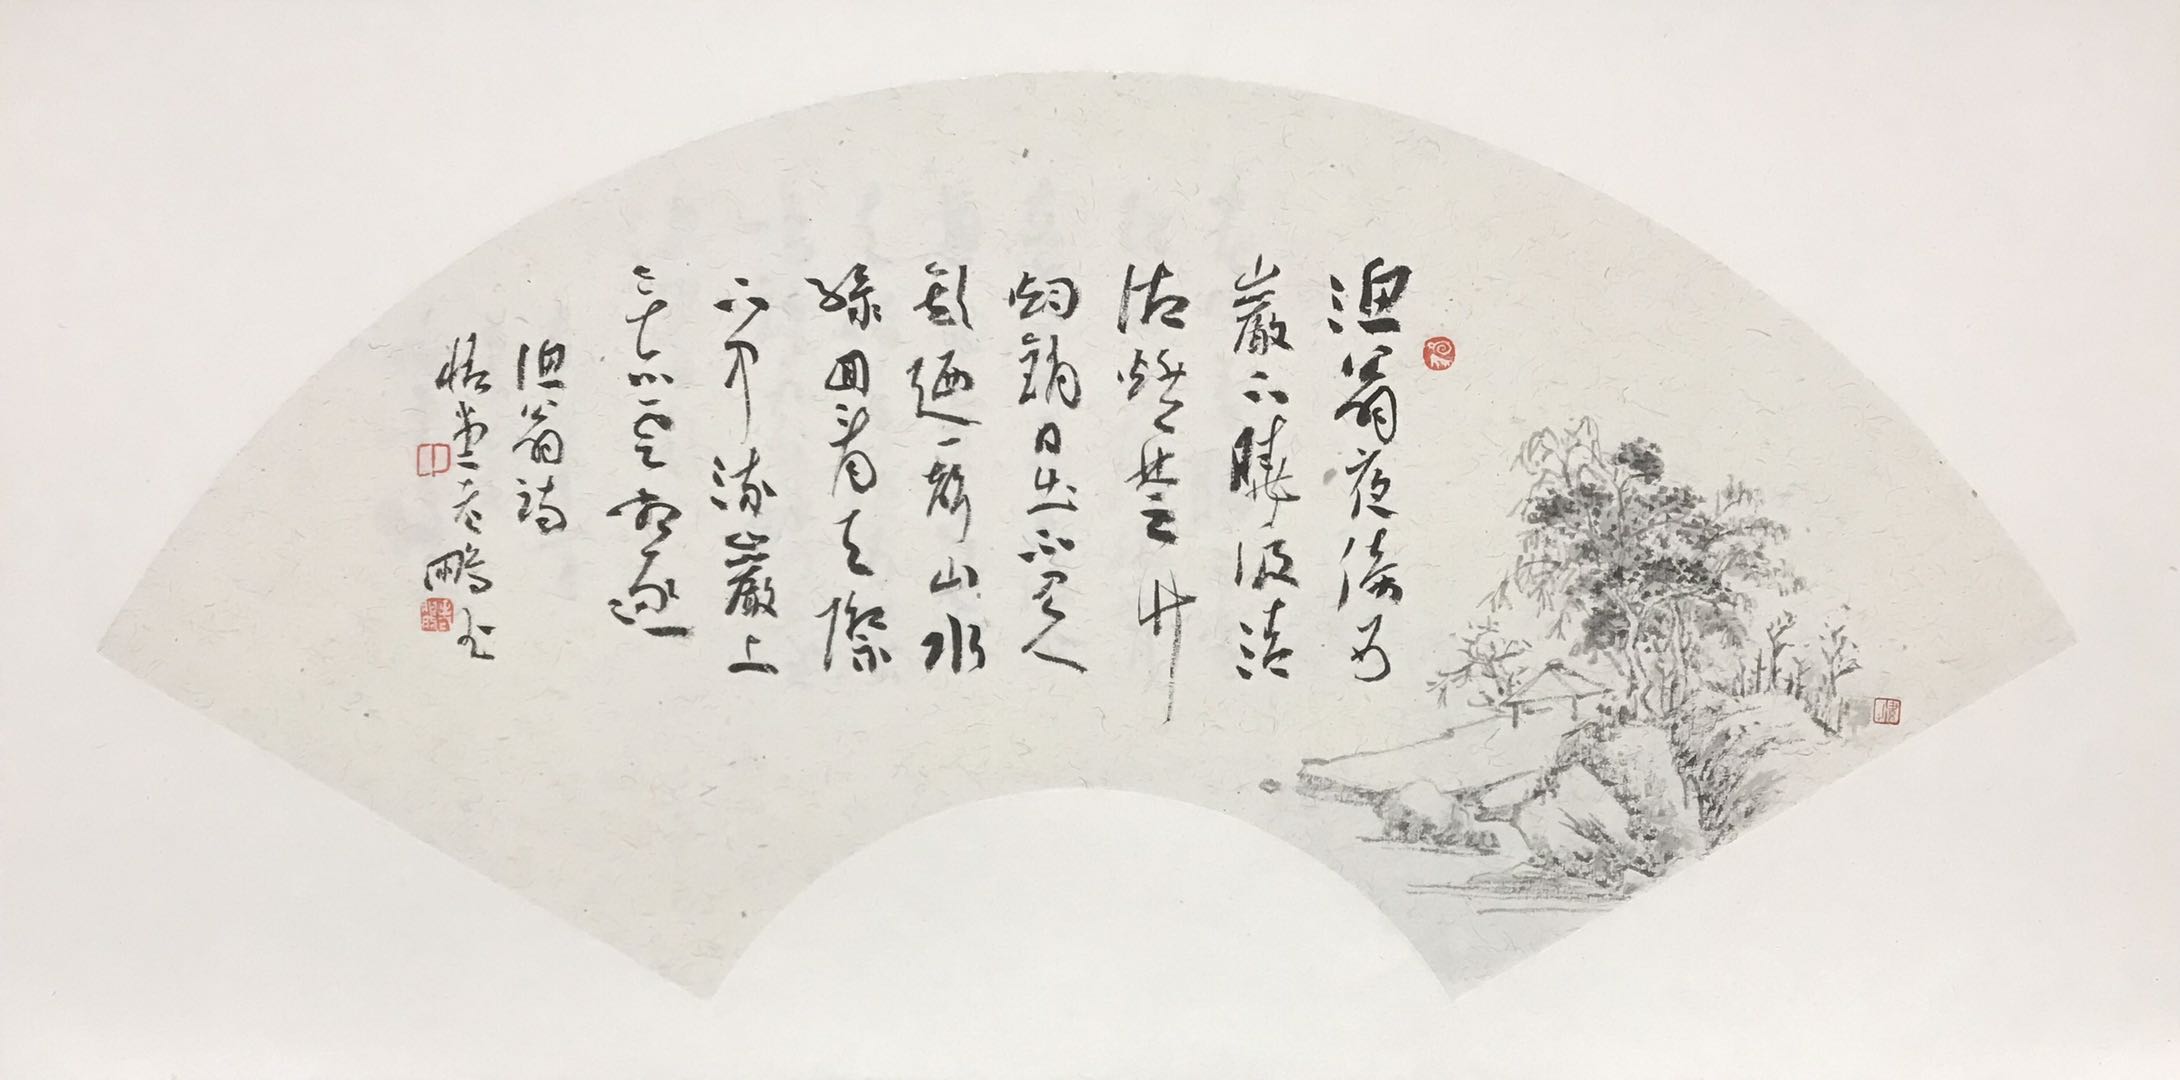 漁翁夜傍西
巖下曉汲清
湘燃楚竹
烟銷日出不見人
欸廼一聲山水
綠回看天際
下中流巖上
無心雲相逐
漁翁詩
鵬书